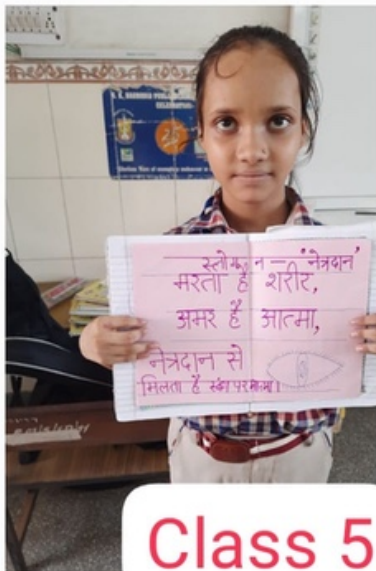 स्लोगन – 'नेत्रदान'
मरता है शरीर,
अमर है आत्मा,
नेत्रदान से
मिलता है स्वंय परमात्मा।
25
Class 5